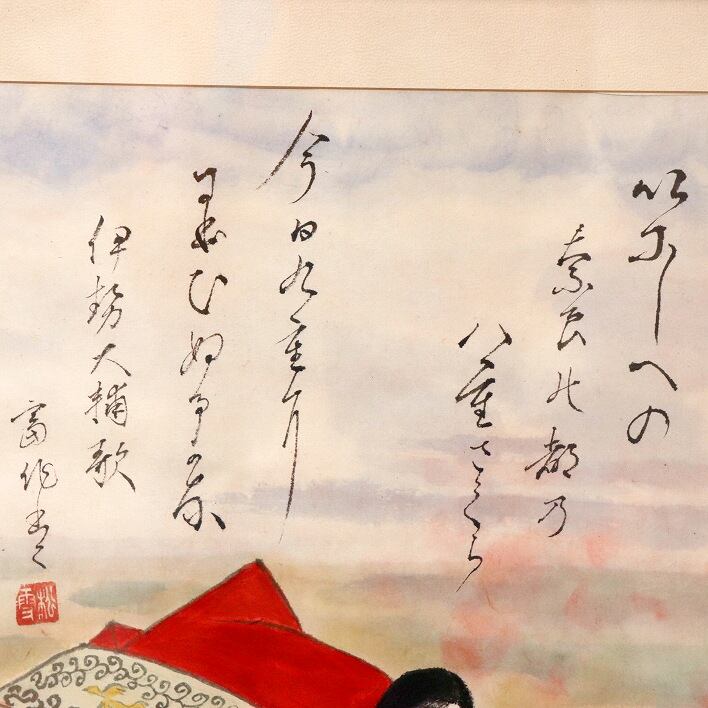 いにしへの
奈良の都乃
八重さくら
今日九重に
にほひぬるかな
伊勢大輔歌
松雪